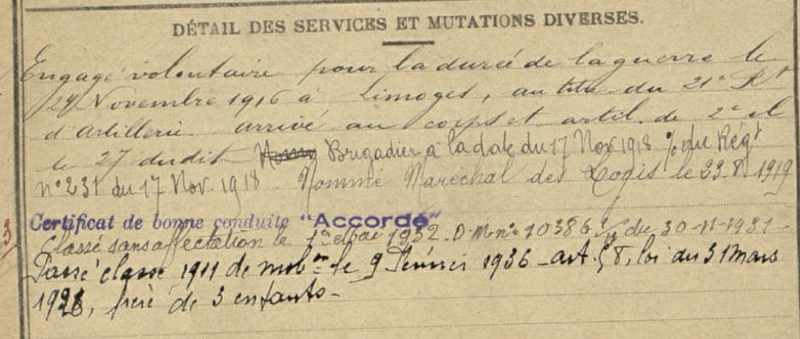 DÉTAIL DES SERVICES ET MUTATIONS DIVERSES.
Engagé volontaire pour la durée de la guerre le
27 Novembre 1916 à Limoges, au titre du 21e Rt
d'artillerie arrivé au corps et artil. de 2e cl
le 27 dudit Brigadier à la date du 17 Nov. 1918 % du Régt
n° 231 du 17 Nov. 1918 Nommé Maréchal des Logis le 23.8.1919
Certificat de bonne conduite "Accordé"
Classé sans affectation le 1er Mai 1932. D.M. n° 10386 du 30-11-1931-
Passé classe 1911 de mobon le 9 Février 1936 - art. 58, loi du 31 Mars
1928, père de 3 enfants-